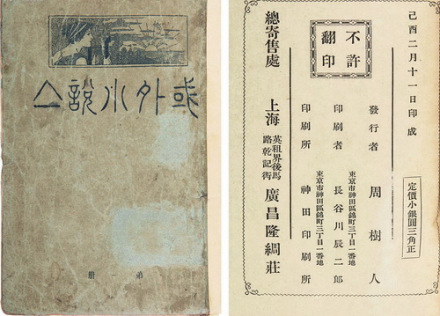 或外小說亼
弟 冊
己酉二月十一日印成
定價小銀圓三角正
發行者 周樹人
不許
翻印
東京市神田區錦町三丁目一番地
印刷者 長谷川辰二郎
東京市神田區錦町三丁目一番地
印刷所 神田印刷所
總寄售處 上海 英租界後馬
路乾記衖 廣昌隆綢莊